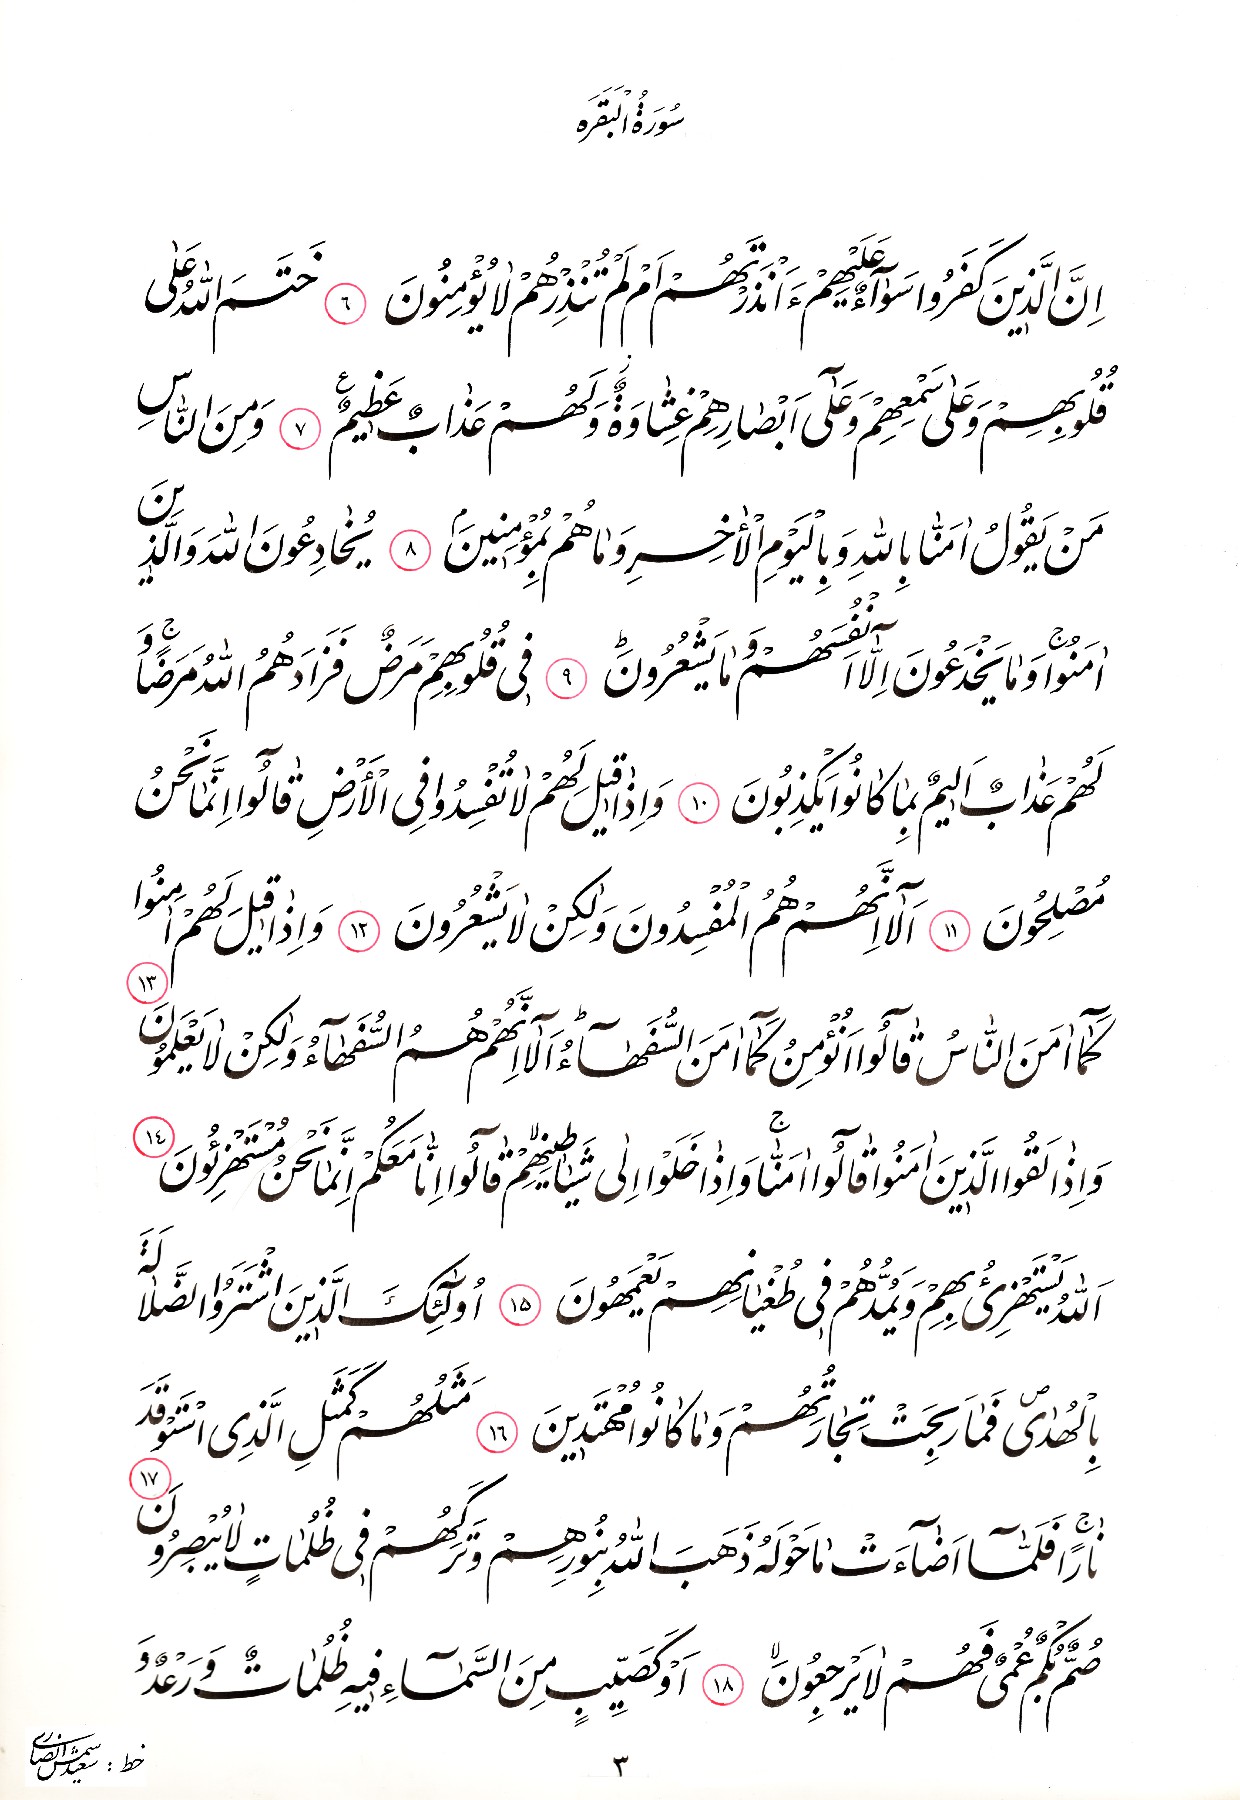 سُورَةُ الْبَقَرَه
اِنَّ الَّذینَ کَفَرُوا سَوٰٓاءٌ عَلَیْهِمْ ءَاَنْذَرْتَهُمْ اَمْ لَمْ تُنْذِرْهُمْ لٰا یُؤْمِنُونَ ٦ خَتَمَ اللّٰهُ عَلٰی
قُلُوبِهِمْ وَ عَلٰی سَمْعِهِمْ وَ عَلٰٓی اَبْصٰارِهِمْ غِشٰاوَةٌ وَ لَهُمْ عَذٰابٌ عَظیمٌ ٧ وَ مِنَ النّٰاسِ
مَنْ یَقُولُ اٰمَنّٰا بِاللّٰهِ وَ بِالْیَوْمِ الْاٰخِرِ وَ مٰا هُمْ بِمُؤْمِنینَ ٨ یُخٰادِعُونَ اللّٰهَ وَ الَّذینَ
اٰمَنُواۚ وَ مٰا یَخْدَعُونَ اِلّٰٓا اَنْفُسَهُمْ وَ مٰا یَشْعُرُونَؕ ٩ فی قُلُوبِهِمْ مَرَضٌ فَزٰادَهُمُ اللّٰهُ مَرَضًاۚ وَ
لَهُمْ عَذٰابٌ اَلیمٌ بِمٰا کٰانُوا یَکْذِبُونَ ١٠ وَ اِذٰا قیلَ لَهُمْ لٰا تُفْسِدُوا فِی الْاَرْضِ قٰالُٓوا اِنَّمٰا نَحْنُ
مُصْلِحُونَ ١١ اَلٰٓا اِنَّهُمْ هُمُ الْمُفْسِدُونَ وَ لٰکِنْ لٰا یَشْعُرُونَ ١٢ وَ اِذٰا قیلَ لَهُمْ اٰمِنُوا
کَمٰٓا اٰمَنَ النّٰاسُ قٰالُٓوا اَنُؤْمِنُ کَمٰٓا اٰمَنَ السُّفَهٰٓاءُؕ اَلٰٓا اِنَّهُمْ هُمُ السُّفَهٰٓاءُ وَ لٰکِنْ لٰا یَعْلَمُونَ ١٣
وَ اِذٰا لَقُوا الَّذینَ اٰمَنُوا قٰالُٓوا اٰمَنّٰاۚ وَ اِذٰا خَلَوْا اِلٰی شَیٰاطینِهِمْۙ قٰالُٓوا اِنّٰا مَعَکُمْ اِنَّمٰا نَحْنُ مُسْتَهْزِئُونَ ١٤
اَللّٰهُ یَسْتَهْزِئُ بِهِمْ وَ یَمُدُّهُمْ فی طُغْیٰانِهِمْ یَعْمَهُونَ ١٥ اُولٰٓئِکَ الَّذینَ اشْتَرَوُا الضَّلٰالَةَ
بِالْهُدٰیۖ فَمٰا رَبِحَتْ تِجٰارَتُهُمْ وَ مٰا کٰانُوا مُهْتَدینَ ١٦ مَثَلُهُمْ کَمَثَلِ الَّذِی اسْتَوْقَدَ
نٰارًاۚ فَلَمّٰٓا اَضٰٓاءَتْ مٰا حَوْلَهُ ذَهَبَ اللّٰهُ بِنُورِهِمْ وَ تَرَکَهُمْ فی ظُلُمٰاتٍ لٰا یُبْصِرُونَ ١٧
صُمٌّ بُکْمٌ عُمْیٌ فَهُمْ لٰا یَرْجِعُونَۙ ١٨ اَوْ کَصَیِّبٍ مِنَ السَّمٰٓاءِ فیهِ ظُلُمٰاتٌ وَ رَعْدٌ وَ
٣
خط : سعید شمس انصاری